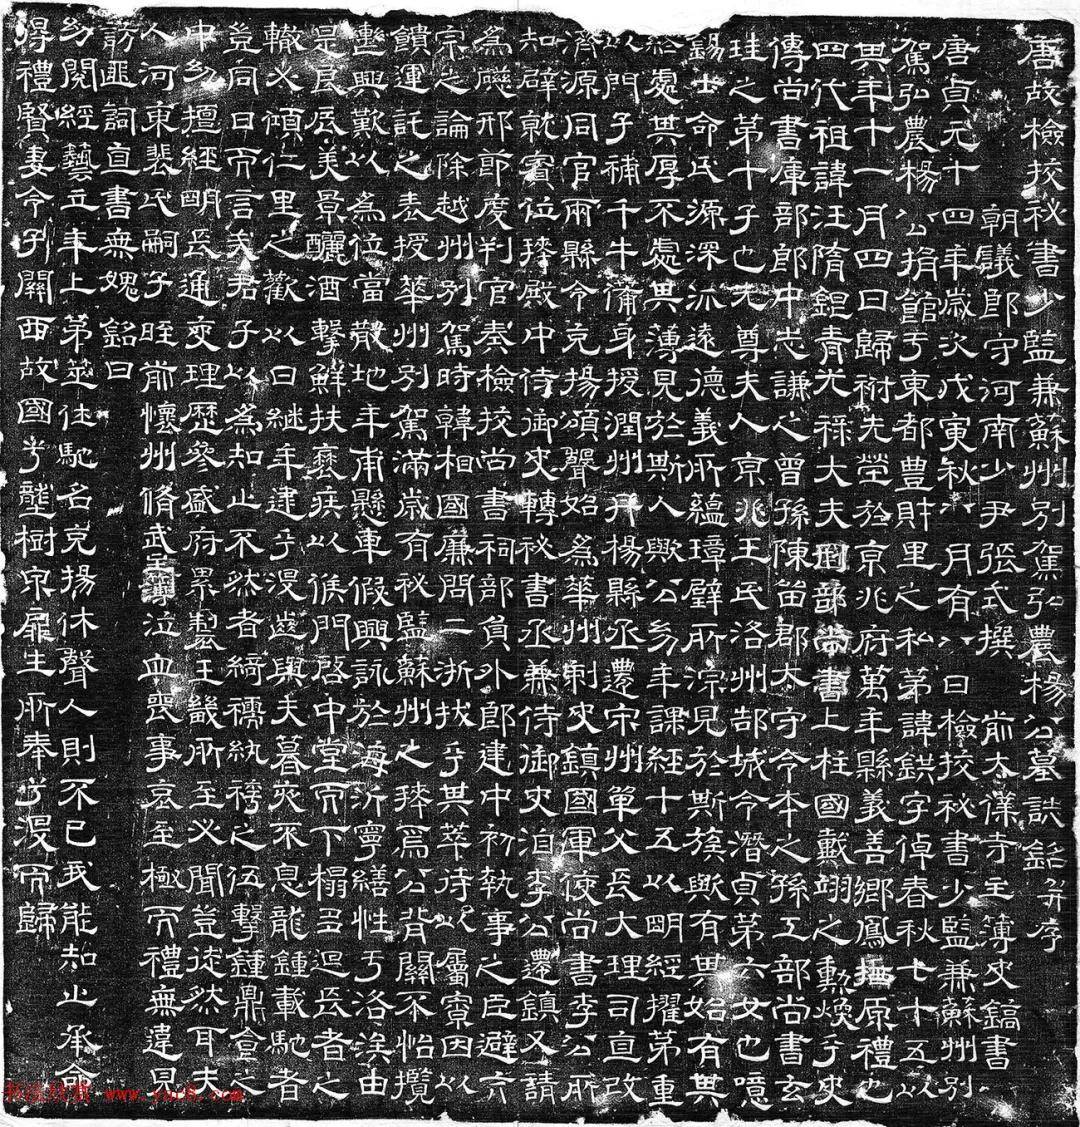 唐故檢挍秘書少監兼蘇州別駕弘農楊公墓誌銘并序
朝議郎守河南少尹張式撰 前太僕寺主簿史鎬書
唐貞元十四年歲次戊寅秋八月有八日檢挍秘書少監兼蘇州別
駕弘農楊公捐館于東都豊財里之私第諱鉷字倬春秋七十五以
其年十一月四日歸祔先塋於京兆府萬年縣義善鄉鳳棲原禮也
四代祖諱汪隋銀青光祿大夫國部尚書上柱國戴翊之勳煥乎史
傳尚書庫部郎中志謙之曾孫陳留郡太守令本之孫工部尚書玄
珪之第十子也先尊夫人京兆王氏洛州郜城令潛貞第六女也噫
錫土命氏源深派遠德義所蘊璋璧所淙見於斯族歟有其始有其
終處其厚不處其薄見於斯人歟公幼年課經十五以明經擢第重
以門子補千牛備身授潤州丹楊縣丞遷宋州單父長大理司直改
濟源同官兩縣令克揚頌聲始為華州刺史鎮國軍使尚書李公所
知辟就賓位拜殿中侍御史轉秘書丞兼侍御史洎李公遷鎮又請
為廱邢節度判官奏檢挍尚書祠部員外郎建中初執事之臣避六
宗之論除越州別駕時韓相國廉問二浙拔乎其萃待以屬寮因以
饋運託之表授華州別駕滿歲有秘監蘇州之拜焉公背關不怡攬
轡興歎以為位當散地年甫懸車假興詠於海沂寧繕性于洛涘由
是良辰美景釃酒擊鮮扶羸疾以俟門啓中堂而下榻多迴長者之
轍必傾仁里之歡以日繼年逮乎漫遊與夫暮夜不息龍鍾載馳者
豈同日而言哉君子以為知止不然者綺襦紈袴之伍擊鍾鼎食之
中幼擅經明長通吏理歷參盛府累製王畿所至必聞豈徒然耳夫
人河東裴氏嗣子晊前懷州脩武主簿泣血喪事哀至極而禮無違見
訪匪詞直書無媿 銘曰
幼閱經藝立年上第筮仕馳名克揚休聲人則不已我能知止承命
得禮賢妻令子關西故國兮壟樹泉扉生所奉兮漫而歸
书法欣赏 www.yac8.com